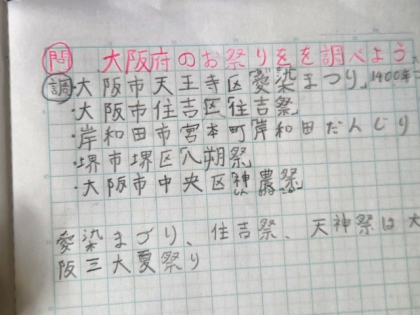 問 大阪府のお祭りをを調べよう
調・大阪市天王寺区愛染まつり 1400年
・大阪市住吉区住吉祭
・岸和田市宮本町岸和田だんじり
・堺市堺区八朔祭
・大阪市中央区神農祭
しんのう
愛染まづり、住吉祭、天神祭は大
阪三大夏祭り